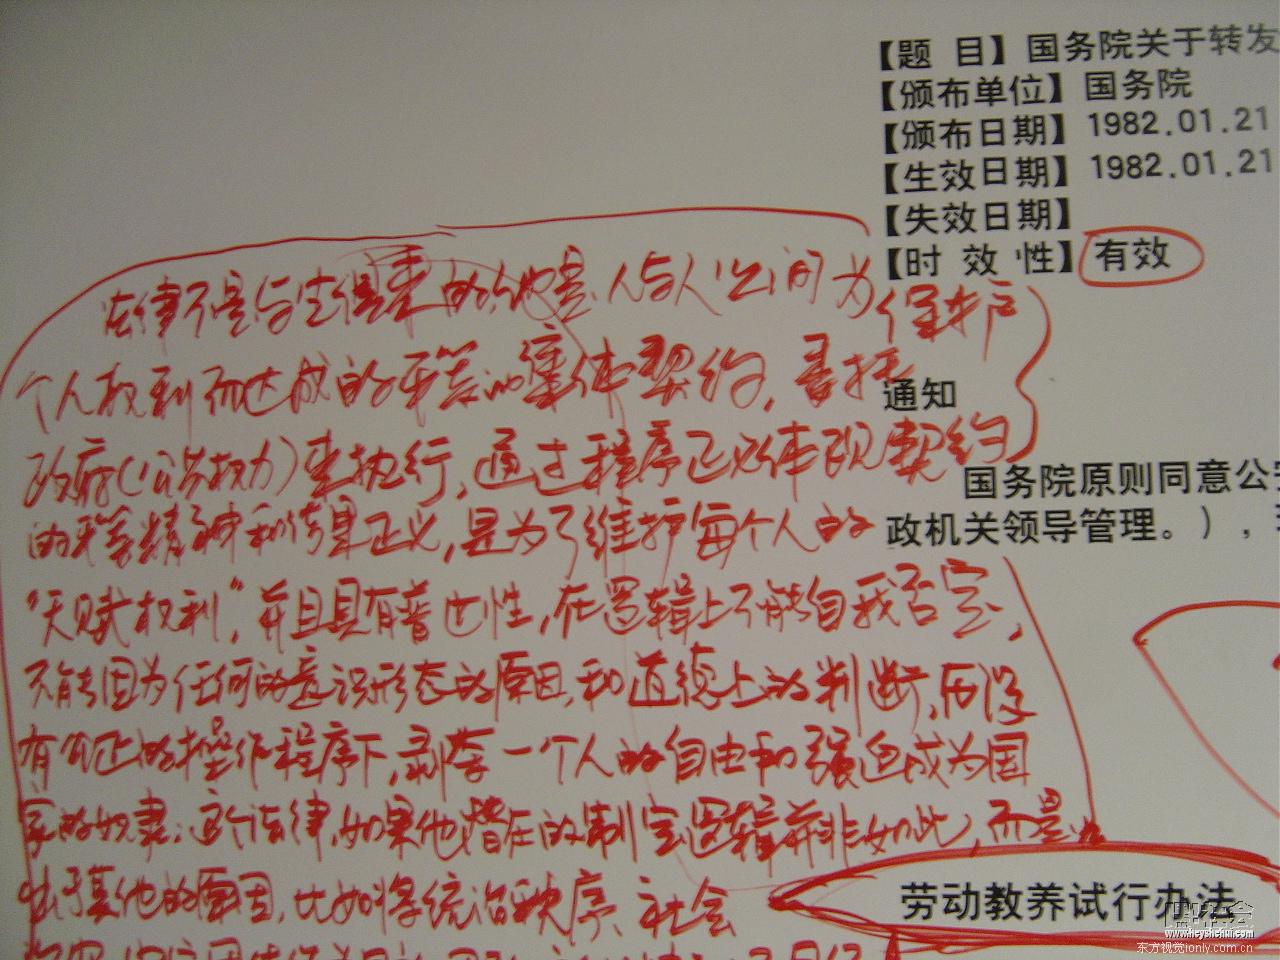 【题 目】国务院关于转发
【颁布单位】国务院
【颁布日期】1982.01.21
【生效日期】1982.01.21
【失效日期】
【时 效 性】有效
通知
国务院原则同意公安
政机关领导管理。），
劳动教养试行办法
法律不是与生俱来的，他是人与人之间为保护
个人权利而达成的平等的集体契约，委托
政府（公共权力）来执行，通过程序正义体现契约
的平等精神和结果正义，是为了维护每个人的
“天赋权利”，并且具有普世性，在逻辑上不能自我否定，
不能因为任何的意识形态的原因，和道德上的判断，而没
有公正的操作程序下，剥夺一个人的自由和强迫成为国
家的奴隶；这个法律，如果他潜在的制定逻辑并非如此，而是
出于其他的原因，比如将统治秩序、社会
www.heyshehui.com
东方视觉ionly.com.cn